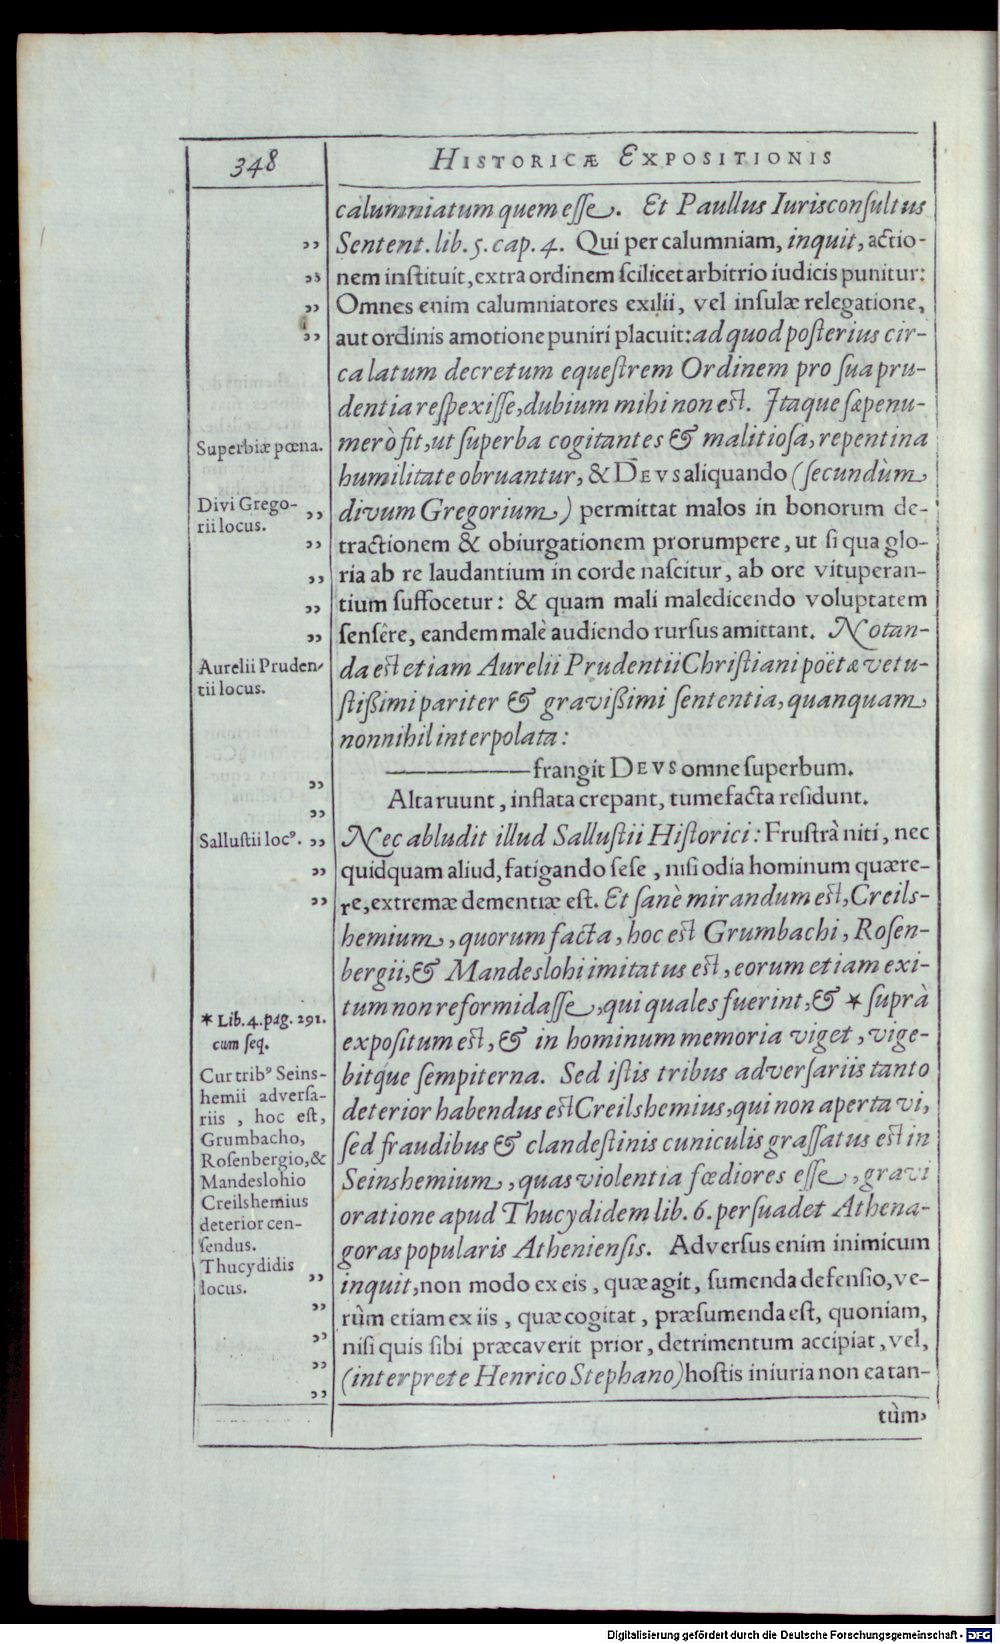 348
HISTORICÆ EXPOSITIONIS
calumniatum quem eſſe. Et Paullus Iurisconſultus
Sentent. lib. 5. cap. 4. Qui per calumniam, inquit, actio-
nem inſtituit, extra ordinem ſcilicet arbitrio iudicis punitur:
Omnes enim calumniatores exilii, vel inſulæ relegatione,
aut ordinis amotione puniri placuit: ad quod poſterius cir-
ca latum decretum equeſtrem Ordinem pro ſua pru-
dentia reſpexiſſe, dubium mihi non eſt. Itaque ſæpenu-
Superbiæ pœna.
merò fit, ut ſuperba cogitantes & malitioſa, repentina
humilitate obruantur, & DEVS aliquando (ſecundùm
Divi Grego-
rii locus.
divum Gregorium) permittat malos in bonorum de-
tractionem & obiurgationem prorumpere, ut ſi qua glo-
ria ab re laudantium in corde naſcitur, ab ore vituperan-
tium ſuffocetur: & quam mali maledicendo voluptatem
ſenſêre, eandem malè audiendo rurſus amittant. Notan-
Aurelii Pruden-
tii locus.
da eſt etiam Aurelii Prudentii Chriſtiani poëtæ vetu-
ſtißimi pariter & gravißimi ſententia, quanquam
nonnihil interpolata:
————frangit DEVS omne ſuperbum.
Alta ruunt, inflata crepant, tumefacta reſidunt.
Salluſtii locꝰ.
Nec abludit illud Salluſtii Hiſtorici: Fruſtrà niti, nec
quidquam aliud, fatigando ſeſe, niſi odia hominum quære-
re, extremæ dementiæ eſt. Et ſanè mirandum eſt, Creils-
hemium, quorum facta, hoc eſt Grumbachi, Roſen-
bergii, & Mandeslohi imitatus eſt, eorum etiam exi-
tum non reformidaſſe, qui quales fuerint, & * ſuprà
* Lib. 4. pag. 291.
cum ſeq.
expoſitum eſt, & in hominum memoria viget, vige-
bitque ſempiterna. Sed iſtis tribus adverſariis tanto
Cur tribꝰ Seins-
hemii adverſa-
riis, hoc eſt,
Grumbacho,
Roſenbergio, &
Mandeslohio
Creilshemius
deterior cen-
ſendus.
deterior habendus eſt Creilshemius, qui non aperta vi,
ſed fraudibus & clandeſtinis cuniculis graſſatus eſt in
Seinshemium, quas violentia fœdiores eſſe, gravi
oratione apud Thucydidem lib. 6. perſuadet Athena-
goras popularis Athenienſis. Adverſus enim inimicum
Thucydidis
locus.
inquit, non modo ex eis, quæ agit, ſumenda defenſio, ve-
rùm etiam ex iis, quæ cogitat, præſumenda eſt, quoniam,
niſi quis ſibi præcaverit prior, detrimentum accipiat, vel,
(interprete Henrico Stephano) hoſtis iniuria non ea tan-
tùm,
Digitalisierung gefördert durch die Deutsche Forschungsgemeinschaft - DFG